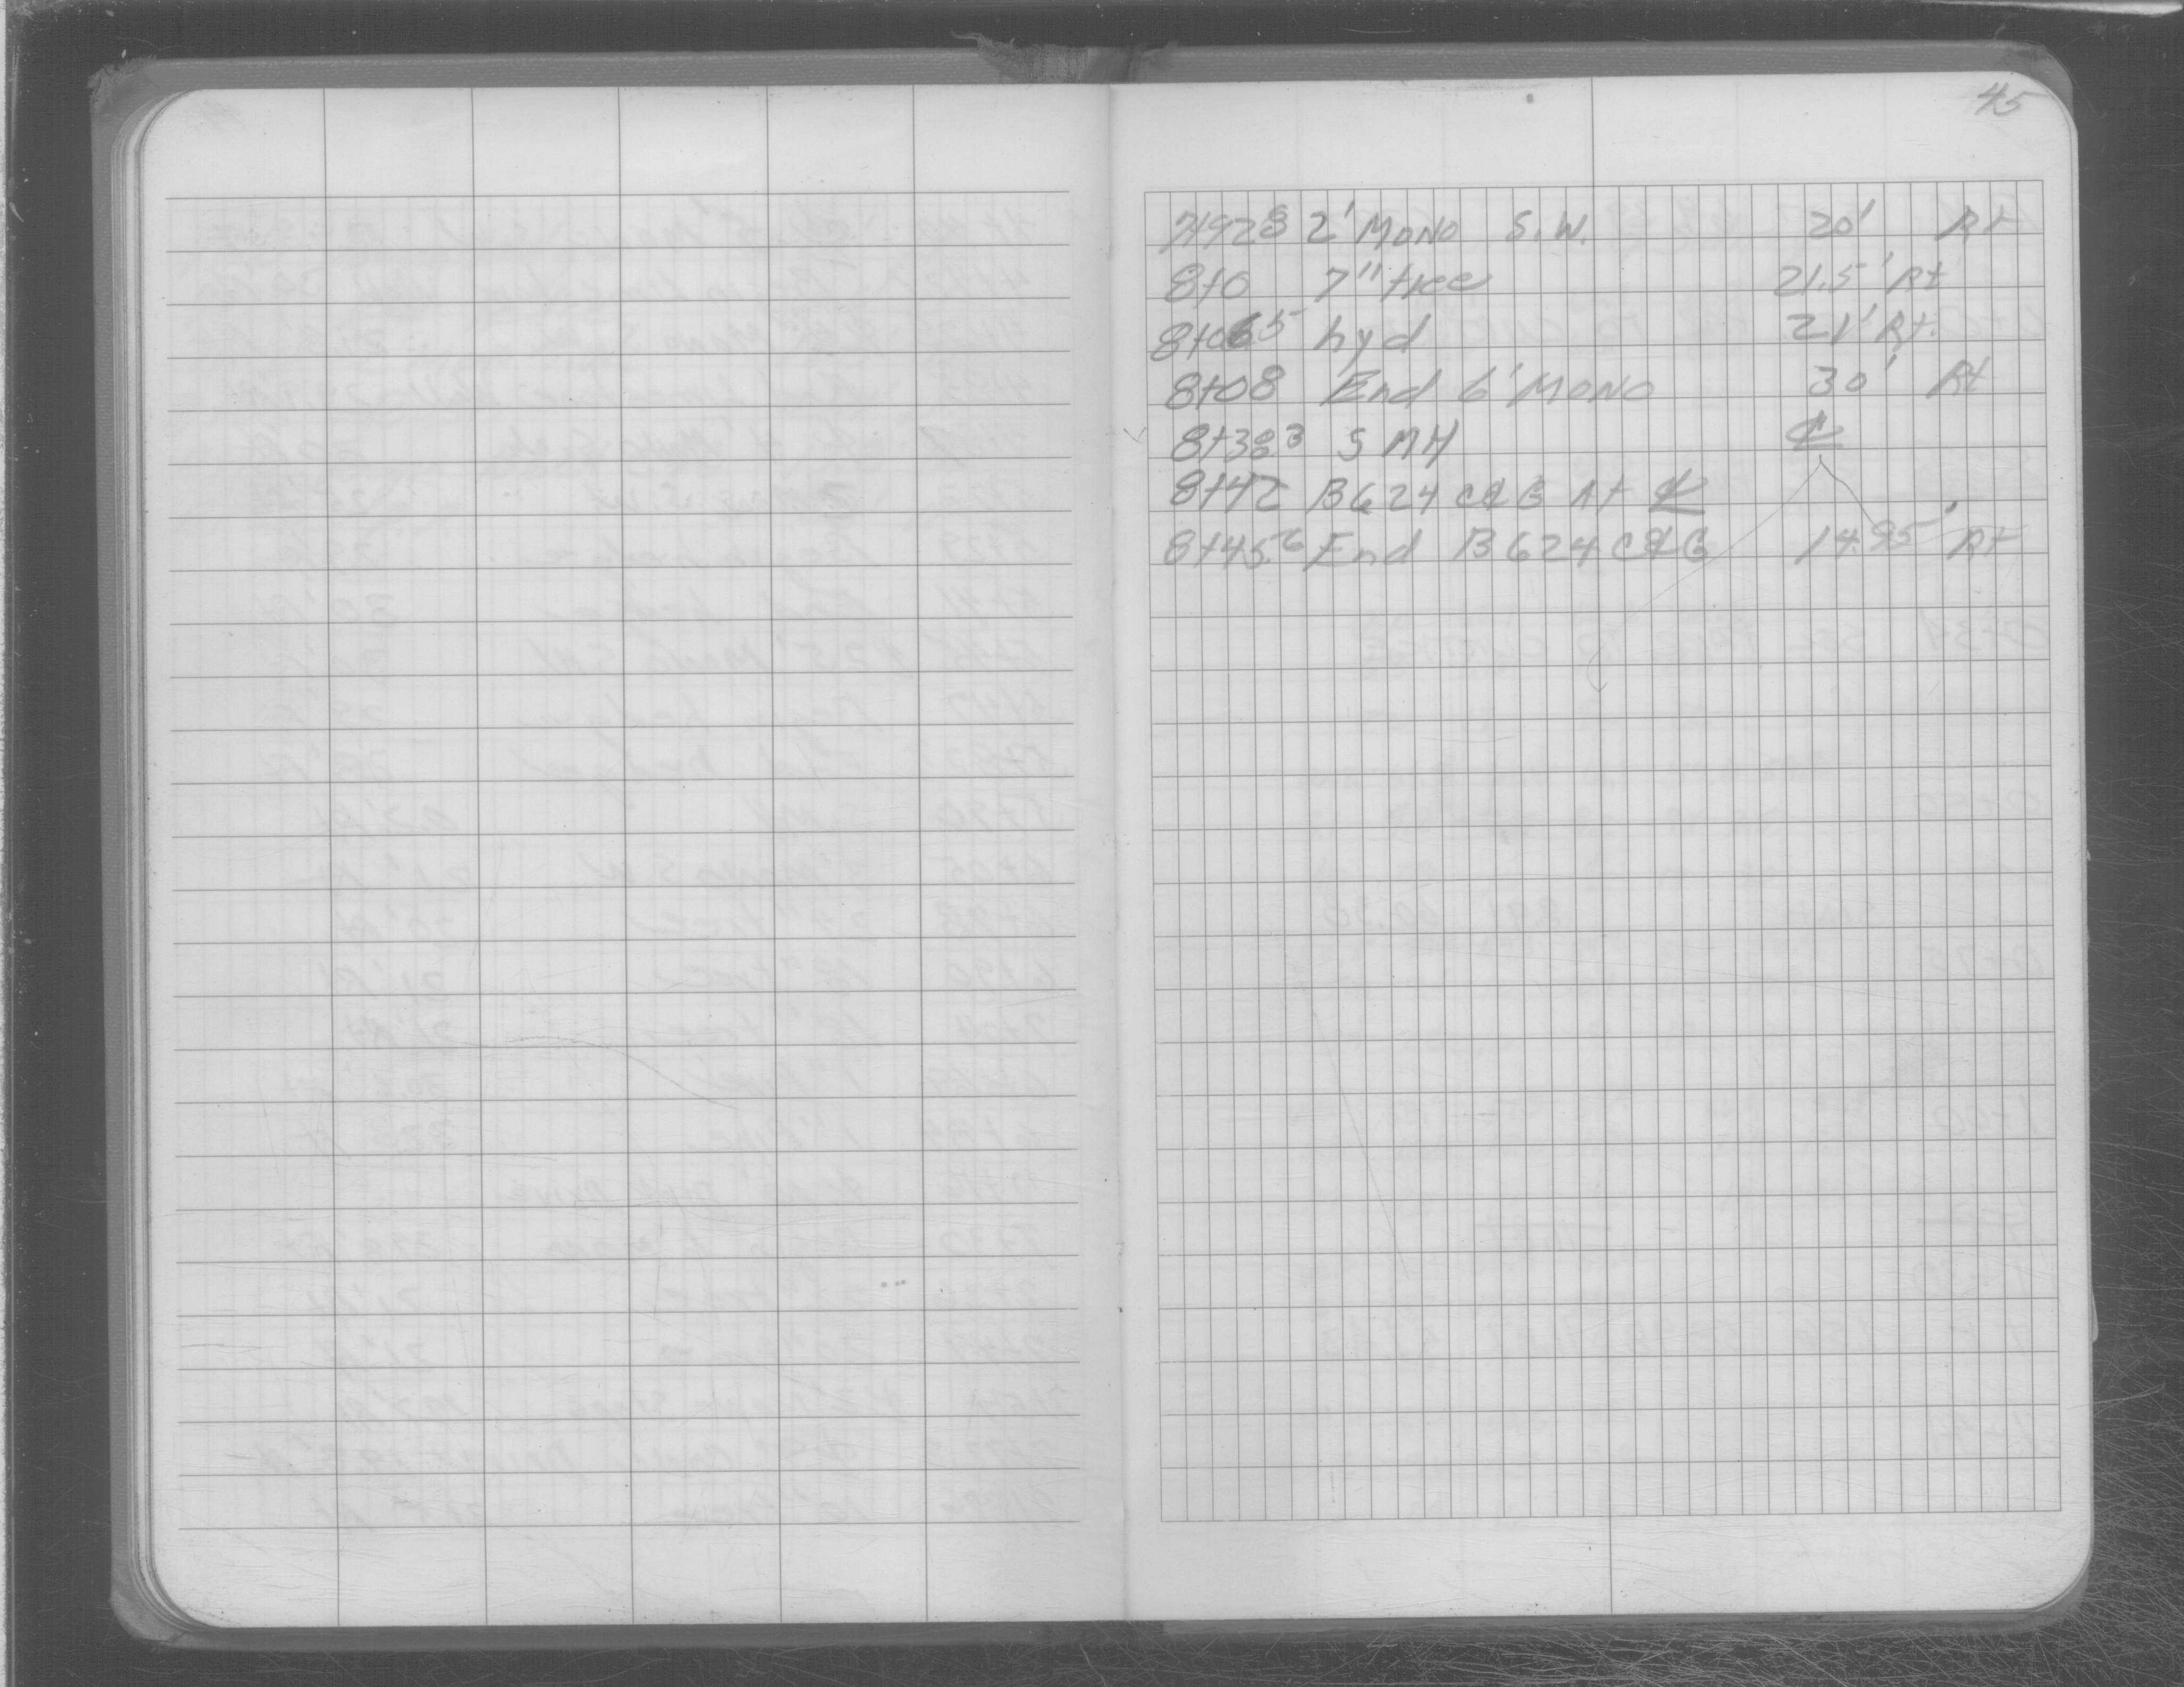 45
7+92⁸ 2' MONO S.W. 20' Rt
8+0 7" tree 21.5' Rt
8+06⁵ hyd 21' Rt.
8+08 End 6' MONO 30' Rt
8+38³ S MH ℄
8+42 B624 C&G At ℄
8+45.⁶ End B624 C&G 14.95' Rt